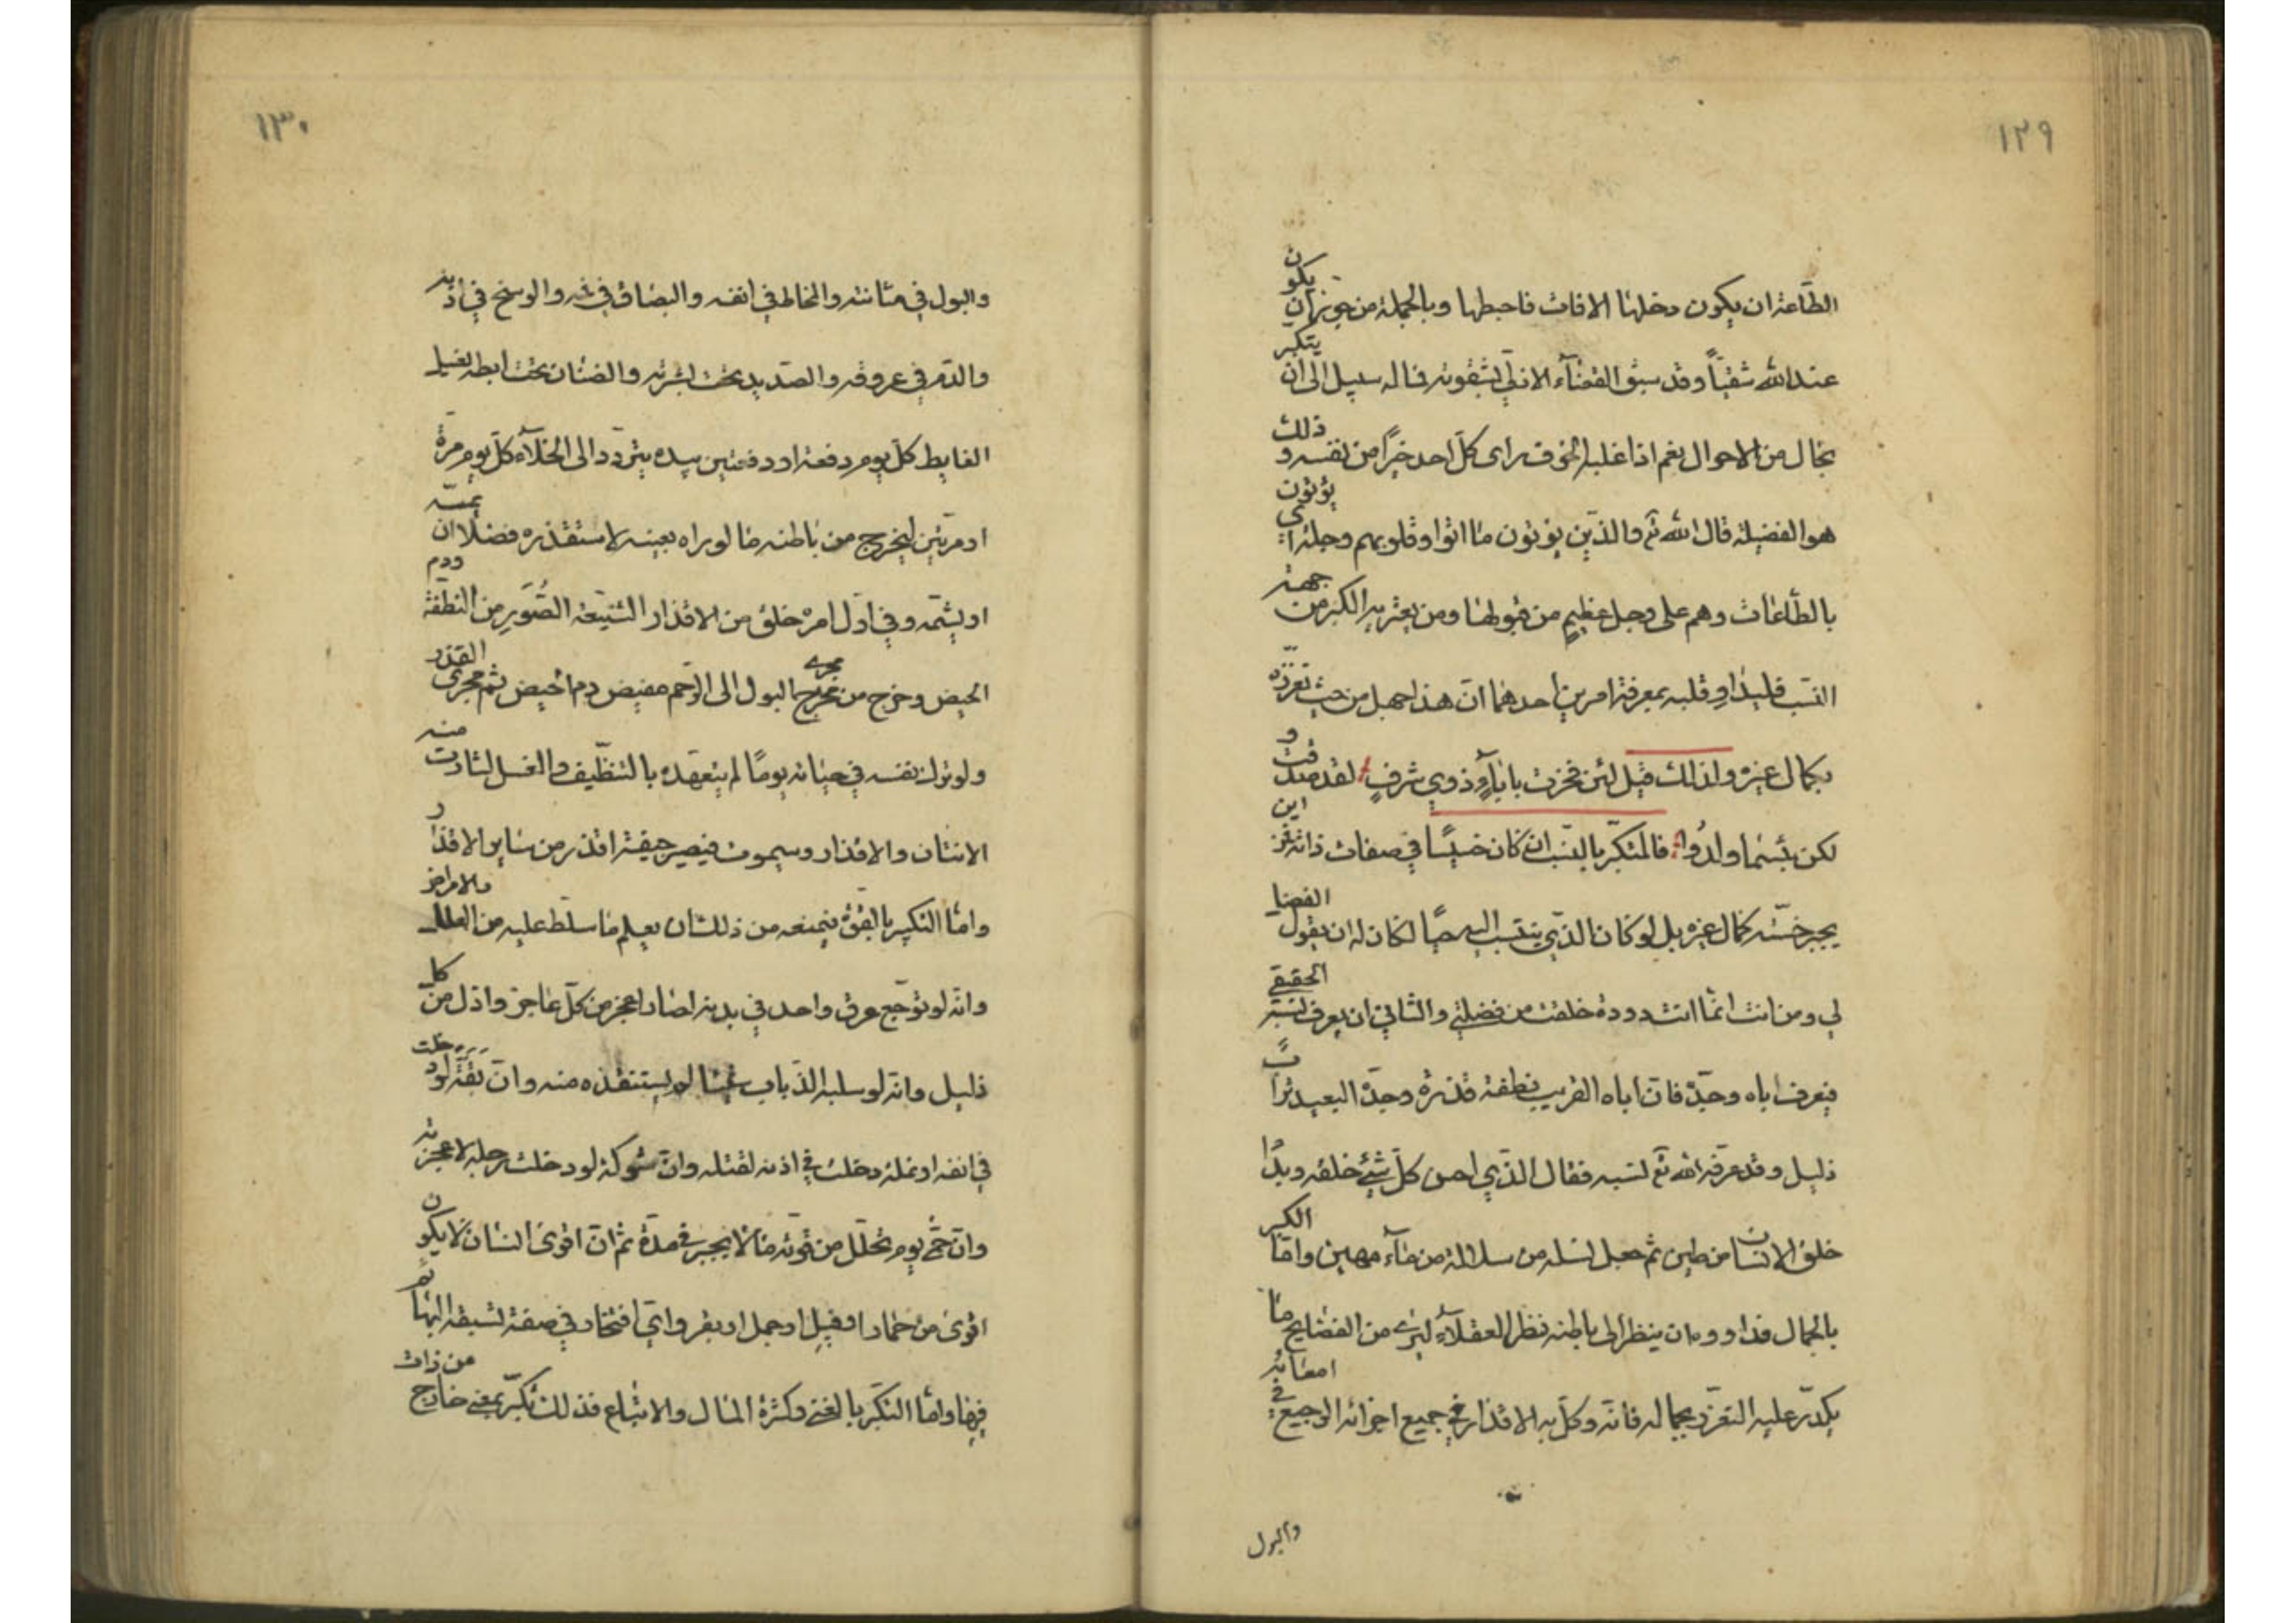 ١٢٩
الطّاعة ان يكون دخلها الافات فاحبطها وبالجملة من جوّز ان يكون
عند الله شقيّاً وقد سبق القضآء الازلي بشقوته فما له سبيل الى ان يتكبر
بحال من الاحوال نعم اذا غلبه الخوف راى كلّ احد خيرًا من نفسه و ذلك
هو الفضيلة قال الله تع والذين يؤتون ما اتوا وقلوبهم وجلة اى يؤتون
بالطّاعات وهم على وجل عظيمٍ من قبولها ومن يعتريه الكبر من جهة
النسب فليداوِ قلبه بمعرفة امرين احدهما انّ هذا جهل من حيث تعزّزه
بكمال غيره ولذلك قيل لئن فخرت باباءٍ ذوي شرفٍ لقد صدقت و
لكن بئسما ولدوا فالمتكبّر بالنسب ان كان خسيسًا في صفات ذاته فمن اين
يجبر خسّته كمال غيره بل لو كان الذي ينتسب اليه حيًا لكان له ان يقول الفضل
لي ومن انت انما انت دودة خلقت من فضلتي والثاني ان يعرف نسبه الحقيقي
فيعرف اباه وجدّه فان اباه القريب نطفة قذرة وجدّه البعيد تراب
ذليل وقد عرفه الله تع نسبه فقال الذي احسن كلّ شئ خلقه وبدا
خلق الانسان من طين ثم جعل نسله من سلالة من مآء مهين وامّا الكبر
بالجمال فدواوه ان ينظر الى باطنه نظر العقلاء ليرى من الفضايح ما
يكدّر عليه التعزز بجماله فانّه وكل به الاقذار في جميع اجزائه الرجيع في امعائه
والبول
١٣٠
والبول في مثانته والمخاط في انفه والبصاق في فمه والوسخ في اذنيه
والدّم في عروقه والصديد تحت بشرته والصنان تحت ابطه يغسل
الغايط كلّ يوم دفعة او دفعتين بيده يتردّد الى الخلآء كلّ يوم مرة
او مرّتين ليخرج من باطنه ما لو راه بعينه لاستقذره فضلا ان يمسّه
او يشمّه وفي اوّل امره خلق من الاقذار الشنيعة الصُّوَرِ من النطفة ودم
الحيض وخرج من مجرى البول الى الرّحم مفيض دم الحيض ثم مجرى القذر
ولو ترك نفسه في حياته يومًا لم يتعهده بالتنظيف والغسل لثارت منه
الانتان والاقذار وسيموت فيصير جيفة اقذر من ساير الاقذار
وامّا التكبر بالقوّة فيمنعه من ذلك ان يعلم ما سلّط عليه من العلل والامراض
وانّه لو توجّع عرق واحد في بدنه لصار اعجز من كلّ عاجز واذل من كل
ذليل وانّه لو سلبه الذباب شيئا لم يستنقذه منه وانّ بقّة لو دخلت
في انفه او نملة دخلت في اذنه لقتله وان شوكة لو دخلت رجله لاعجزته
وانّ حمّى يوم تحلّل من قوّته ما لا يجبر في مدّة ثم انّ اقوى انسان لا يكون
اقوى من حمار او فيل او جمل او بقر واي افتخار في صفة تسبقه البهائم
فيها وامّا التكبّر بالغنى وكثرة المال والاتباع فذلك تكبّر بمعنى خارج من ذات